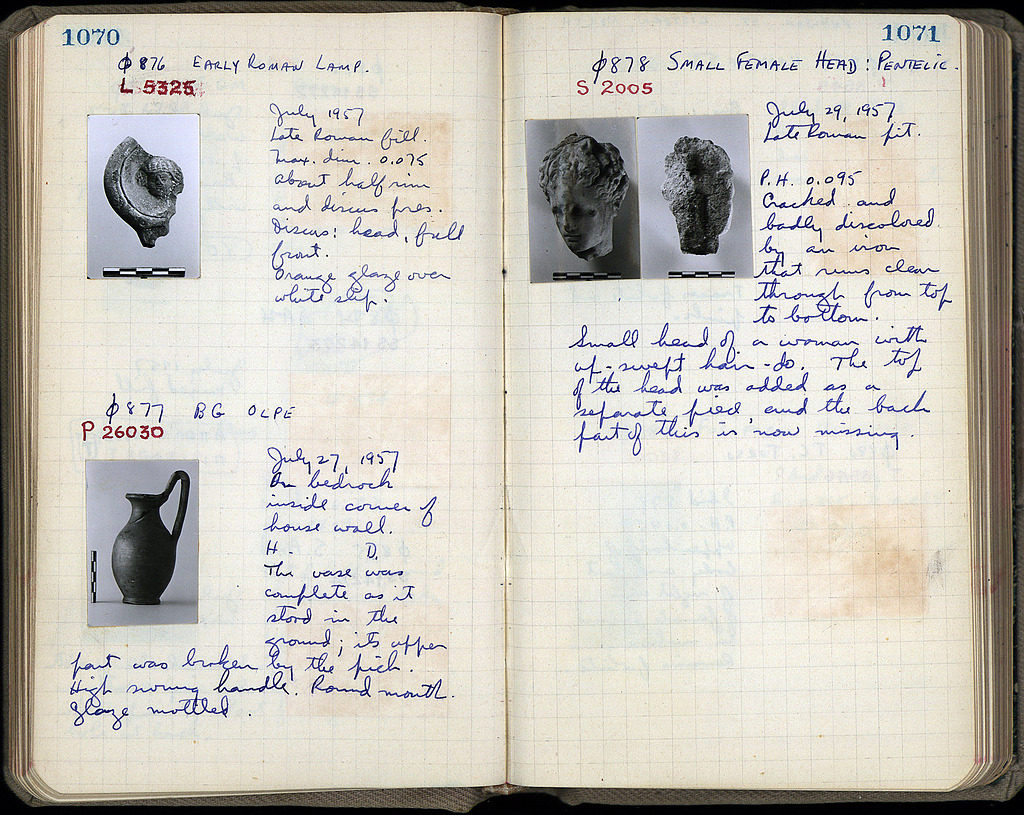 1070
φ876 EARLY ROMAN LAMP.
L 5325
July 1957
Late Roman fill.
Max. dim. 0.075
About half rim
and discus pres.
Discus: head, full
front.
Orange glaze over
white slip.
φ877 BG OLPE
P 26030
July 27, 1957
On bedrock
inside corner of
house wall.
H. D.
The vase was
complete as it
stood in the
ground; its upper
part was broken by the pick.
High swung handle. Round mouth.
Glaze mottled.
1071
φ878 SMALL FEMALE HEAD: PENTELIC.
S 2005
July 29, 1957
Late Roman pit.
P.H. 0.095
Cracked and
badly discolored
by an iron
that runs clear
through from top
to bottom.
Small head of a woman with
up-swept hair-do. The top
of the head was added as a
separate piece, and the back
part of this is now missing.